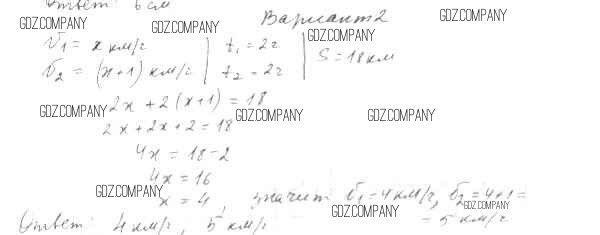 Ответ: 6 см
Вариант 2
GDZ.COMPANY GDZ.COMPANY GDZ.COMPANY GDZ.COMPANY
V₁ = x км/ч | t₁ = 2ч | S = 18 км
V₂ = (x+1) км/ч | t₂ = 2ч
2x + 2(x+1) = 18
GDZ.COMPANY GDZ.COMPANY GDZ.COMPANY
2x + 2x + 2 = 18
4x = 18 - 2
4x = 16
GDZ.COMPANY
x = 4, значит V₁ = 4 км/ч, V₂ = 4+1 =
GDZ.COMPANY GDZ.COMPANY
= 5 км/ч
Ответ: 4 км/ч, 5 км/ч